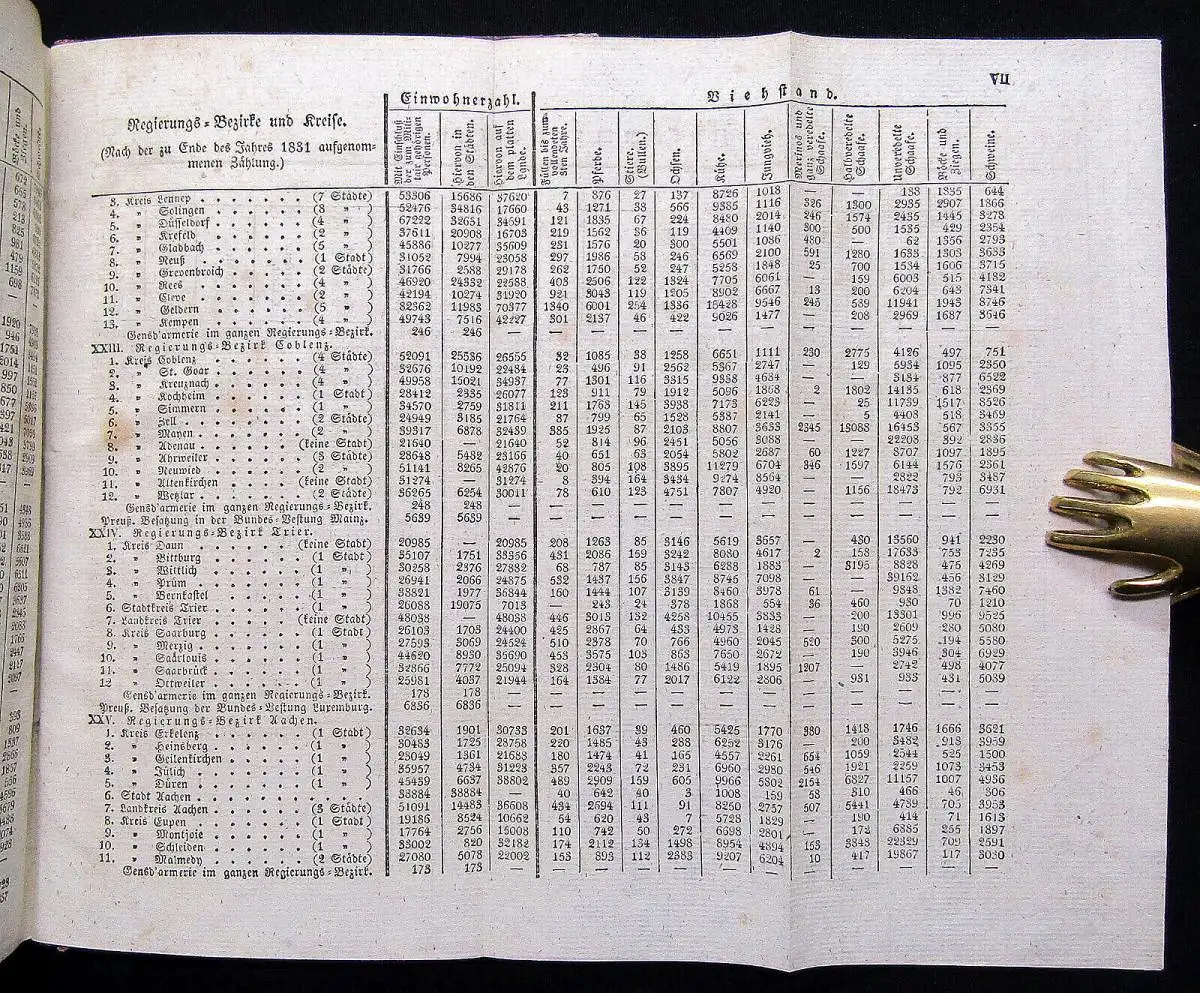 VII
Einwohnerzahl. Viehstand.
Regierungs-Bezirke und Kreise.
(Nach der zu Ende des Jahres 1831 aufgenommenen Zählung.)
Mit Einschluß der zum Militair gehörigen Personen.
Hiervon in den Städten.
Hiervon auf dem platten Lande.
Füllen bis zum vollendeten 3ten Jahre.
Pferde.
Stiere. (Bullen.)
Ochsen.
Kühe.
Jungvieh.
Merinos und ganz veredelte Schaafe.
Halbveredelte Schaafe.
Unveredelte Schaafe.
Böcke und Ziegen.
Schweine.
3. Kreis Lennep (7 Städte) 53306 15686 37620 7 376 27 137 8726 1018 — — 138 1335 644
4. " Solingen (8 ") 52476 34816 17660 43 1271 38 566 9385 1116 326 1300 2935 2907 1866
5. " Düsseldorf (4 ") 67222 32631 34591 121 1835 67 224 8480 2014 246 1574 2435 1445 3278
6. " Krefeld (2 ") 37611 20908 16703 219 1562 36 119 4409 1140 300 500 1535 429 2354
7. " Gladbach (5 ") 45886 10277 35609 231 1576 20 300 5501 1086 480 — 62 1356 2793
8. " Neuß (1 Stadt) 31052 7994 23058 297 1986 58 246 6569 2100 591 1280 1633 1303 3633
9. " Grevenbroich (2 Städte) 31766 2588 29178 262 1750 52 247 5258 1848 25 700 1534 1606 3715
10. " Rees (4 ") 46920 24332 22588 403 2506 122 1324 7705 6061 — 159 6003 515 4182
11. " Cleve (2 ") 42194 10274 31920 921 3043 119 1205 8902 6667 13 200 6204 643 7341
12. " Geldern (5 ") 82362 11983 70377 1340 6001 254 1336 15428 9546 245 539 11941 1943 8746
13. " Kempen (4 ") 49743 7516 42227 301 2137 46 422 9026 1477 — 208 2969 1687 3646
Gensd'armerie im ganzen Regierungs-Bezirk. 246 246 — — — — — — — — — — — —
XXIII. Regierungs-Bezirk Coblenz.
1. Kreis Coblenz (4 Städte) 52091 25536 26555 32 1085 38 1258 6651 1111 230 2775 4126 497 751
2. " St. Goar (4 ") 32676 10192 22484 23 496 91 2562 5367 2747 — 129 5934 1095 2350
3. " Kreuznach (4 ") 49958 15021 34937 77 1301 116 3315 9338 4684 — — 3134 877 6522
4. " Kochheim (1 Stadt) 28412 2335 26077 123 911 79 1912 5096 1868 2 1802 14135 618 2369
5. " Simmern (1 ") 34570 2759 31811 211 1763 145 3938 7173 6223 — 25 11739 1517 8526
6. " Zell (2 Städte) 24949 3185 21764 87 799 65 1528 5387 2141 — 5 4408 518 3469
7. " Mayen (2 ") 39317 6878 32439 385 1925 87 2103 8807 3633 2345 13088 16453 567 3355
8. " Adenau (keine Stadt) 21640 — 21640 52 814 96 2451 5056 3088 — — 22208 392 2836
9. " Ahrweiler (3 Städte) 28648 5482 23166 40 651 63 2054 5802 2687 60 1227 8707 1097 1895
10. " Neuwied (2 ") 51141 8265 42876 20 805 108 3895 11279 6704 346 1597 6144 1576 2361
11. " Altenkirchen (keine Stadt) 31274 — 31274 8 394 164 3434 9274 8564 — — 2822 793 3487
12. " Wetzlar (2 Städte) 36265 6254 30011 78 610 123 4751 7807 4920 — 1156 18473 792 6931
Gensd'armerie im ganzen Regierungs-Bezirk. 248 248 — — — — — — — — — — — —
Preuß. Besatzung in der Bundes-Vestung Mainz. 5639 5639 — — — — — — — — — — — —
XXIV. Regierungs-Bezirk Trier.
1. Kreis Daun (keine Stadt) 20985 — 20985 208 1263 85 3146 5619 3657 — 430 13560 941 2230
2. " Bittburg (1 Stadt) 35107 1751 33356 431 2086 159 3242 8080 4617 2 158 17633 753 7235
3. " Wittlich (1 ") 30258 2376 27882 68 787 85 3143 6288 1883 — 3195 8828 475 4269
4. " Prüm (1 ") 26941 2066 24875 532 1437 156 3847 8745 7098 — — 39162 456 3129
5. " Bernkastel (1 ") 38821 1977 36844 160 1444 107 3139 8460 3978 61 — 9848 1382 7460
6. Stadtkreis Trier (1 ") 26088 19075 7013 — 243 24 378 1868 554 36 460 930 70 1210
7. Landkreis Trier (keine Stadt) 48038 — 48038 446 3013 132 4258 10455 3833 — 200 13301 996 9525
8. Kreis Saarburg (1 Stadt) 26103 1703 24400 425 2867 64 433 4973 1428 — 190 2609 280 5080
9. " Merzig (1 ") 27593 3069 24524 510 2378 70 766 4960 2045 620 300 5275 194 5580
10. " Saarlouis (1 ") 44620 8930 35690 453 3575 103 863 7650 2672 — 190 3946 304 6929
11. " Saarbrück (1 ") 32866 7772 25094 328 2304 80 1486 5419 1895 1207 — 2742 498 4077
12 " Ottweiler (1 ") 25981 4037 21944 164 1384 77 2017 6122 2806 — 931 935 431 5039
Gensd'armerie im ganzen Regierungs-Bezirk. 173 173 — — — — — — — — — — — —
Preuß. Besatzung der Bundes-Vestung Luxemburg. 6836 6836 — — — — — — — — — — — —
XXV. Regierungs-Bezirk Aachen.
1. Kreis Erkelenz (1 Stadt) 32634 1901 30733 201 1637 39 460 5425 1770 380 1418 1746 1666 3621
2. " Heinsberg (1 ") 30483 1725 28758 220 1485 43 288 6252 3176 — 200 3482 913 3959
3. " Geilenkirchen (1 ") 23049 1361 21688 180 1474 41 165 4557 2261 654 1059 2544 525 1500
4. " Jülich (1 ") 35957 4734 31223 357 2243 72 231 6960 2980 546 1921 2259 1073 3453
5. " Düren (1 ") 45439 6637 38802 489 2909 159 605 9966 5802 2154 6827 11157 1007 4936
6. Stadt Aachen 38884 38884 — 40 642 40 3 1008 159 58 310 466 46 306
7. Landkreis Aachen (3 Städte) 51091 14483 36608 434 2694 111 91 8250 2757 507 5441 4739 705 3953
8. Kreis Eupen (1 ") 19186 8524 10662 54 620 43 7 5728 1829 — 190 414 71 1613
9. " Montjoie (1 ") 17764 2756 15008 110 742 50 272 6698 2801 — 172 6885 255 1897
10. " Schleiden (1 ") 33002 820 32182 174 2112 134 1498 8954 4894 153 3843 22329 709 2591
11. " Malmedy (2 Städte) 27080 5078 22002 153 893 112 2383 9207 6204 10 417 19867 117 3030
Gensd'armerie im ganzen Regierungs-Bezirk. 173 173 — — — — — — — — — — — —